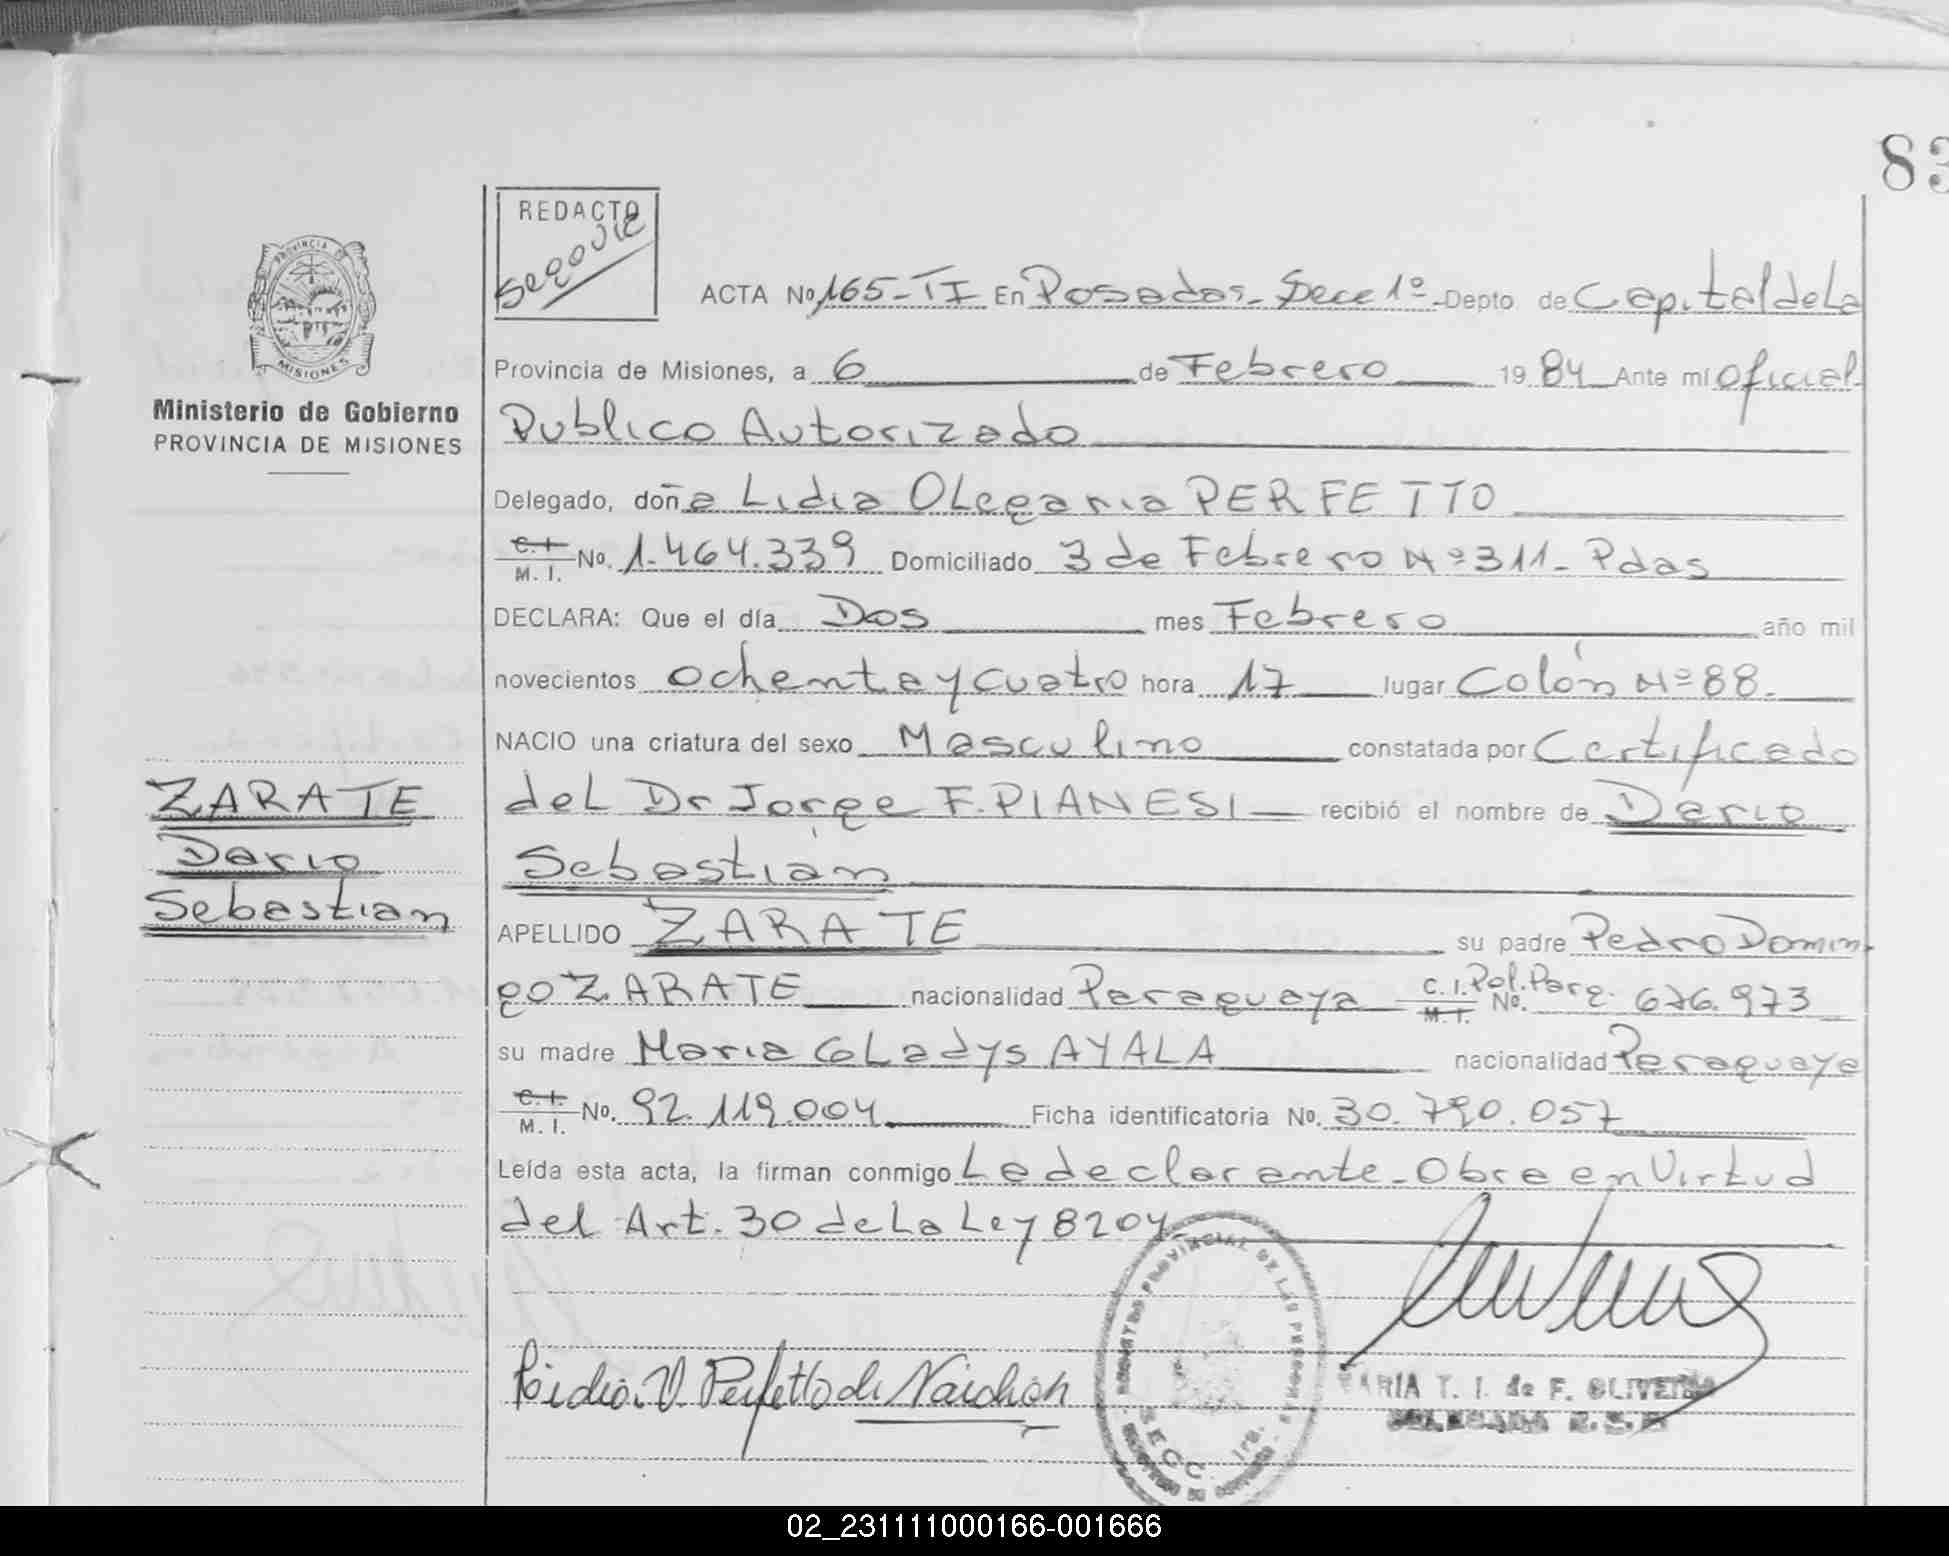 83
REDACTO
Segovie
PROVINCIA DE
MISIONES
Ministerio de Gobierno
PROVINCIA DE MISIONES
ACTA No 165-TI En Posadas- Secc 1º - Depto de Capital de La
Provincia de Misiones, a 6 de Febrero 19 84 Ante mí Oficial
Publico Autorizado
Delegado, doñ a Lidia OLegaria PERFETTO
C.I. M.I. No. 1.464.339 Domiciliado 3 de Febrero Nº 311- Pdas
DECLARA: Que el día Dos mes Febrero año mil
novecientos ochenta y cuatro hora 17 lugar Colón Nº 88.
NACIO una criatura del sexo Masculino constatada por Certificado
deL Dr Jorge F. PIANESI recibió el nombre de Dario
Sebastián
APELLIDO ZARATE su padre Pedro Domin
go ZARATE nacionalidad Paraguaya C.I. M.I. Pol. Parg. No. 676.973
su madre Maria GLadys AYALA nacionalidad Paraguaya
C.I. M.I. No. 92.119.004 Ficha identificatoria No. 30.790.057
Leída esta acta, la firman conmigo La declarante- Obra en Virtud
del Art. 30 de La Ley 8204-
ZARATE
Dario
Sebastian
Lidia. V. Perfetto de Naichon
PROVINCIAL DE LAS PERSONAS
SECC. 1ra.
MARIA T. I. de F. OLIVEIRA
DELEGADA
02_231111000166-001666